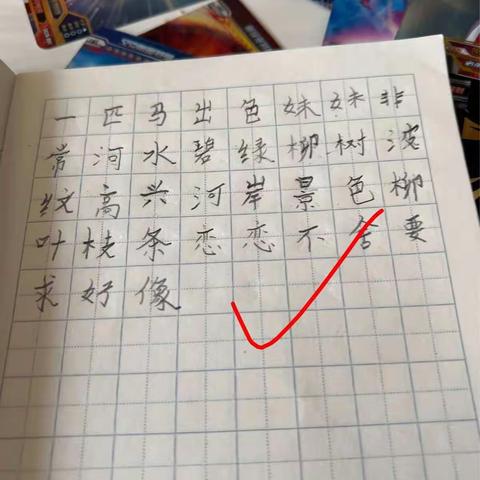 一匹马出色妹妹非
常河水碧绿柳树波
纹高兴河岸景色柳
叶枝条恋恋不舍要
求好像